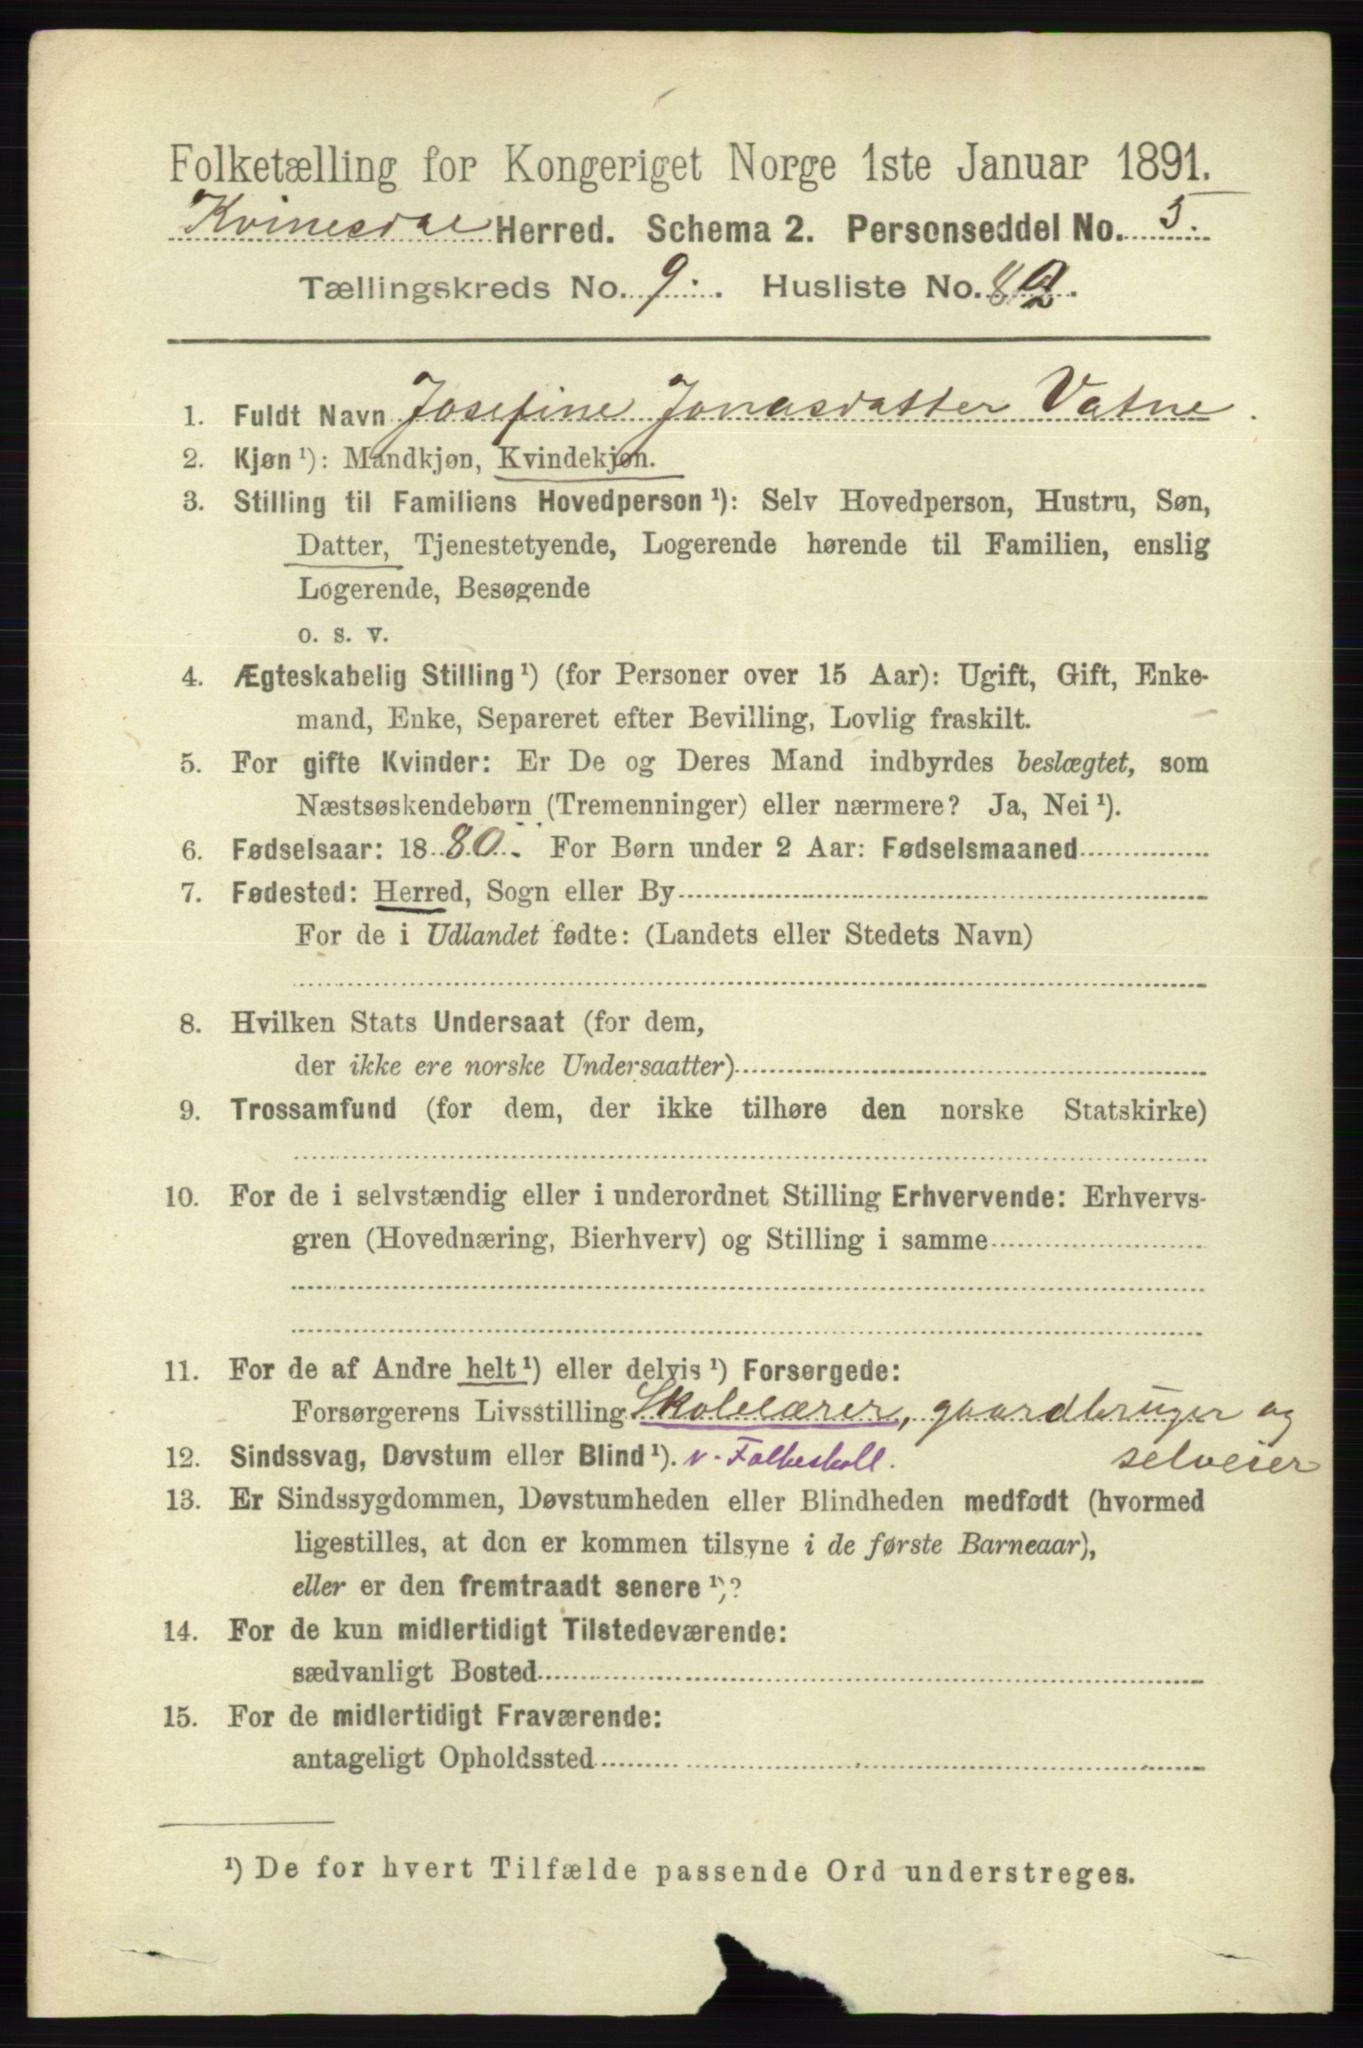 Folketælling for Kongeriget Norge 1ste Januar 1891.
Kvinesdal Herred. Schema 2. Personseddel No. 5.
Tællingskreds No. 9. Husliste No.
1. Fuldt Navn Josefine Jonasdatter Vatne.
2. Kjøn ¹): Mandkjøn, Kvindekjøn.
3. Stilling til Familiens Hovedperson ¹): Selv Hovedperson, Hustru, Søn,
Datter, Tjenestetyende, Logerende hørende til Familien, enslig
Logerende, Besøgende
o. s. v.
4. Ægteskabelig Stilling ¹) (for Personer over 15 Aar): Ugift, Gift, Enke-
mand, Enke, Separeret efter Bevilling, Lovlig fraskilt.
5. For gifte Kvinder: Er De og Deres Mand indbyrdes beslægtet, som
Næstsøskendebørn (Tremenninger) eller nærmere? Ja, Nei ¹).
6. Fødselsaar: 1880. For Børn under 2 Aar: Fødselsmaaned
7. Fødested: Herred, Sogn eller By
For de i Udlandet fødte: (Landets eller Stedets Navn)
8. Hvilken Stats Undersaat (for dem,
der ikke ere norske Undersaatter)
9. Trossamfund (for dem, der ikke tilhøre den norske Statskirke)
10. For de i selvstændig eller i underordnet Stilling Erhvervende: Erhvervs-
gren (Hovednæring, Bierhverv) og Stilling i samme
11. For de af Andre helt ¹) eller delvis ¹) Forsørgede:
Forsørgerens Livsstilling Skolelærer, gaardbruger og
selveier
12. Sindssvag, Døvstum eller Blind ¹). v. Folkeskoll.
13. Er Sindssygdommen, Døvstumheden eller Blindheden medfødt (hvormed
ligestilles, at den er kommen tilsyne i de første Barneaar),
eller er den fremtraadt senere ¹)?
14. For de kun midlertidigt Tilstedeværende:
sædvanligt Bosted
15. For de midlertidigt Fraværende:
antageligt Opholdssted
¹) De for hvert Tilfælde passende Ord understreges.